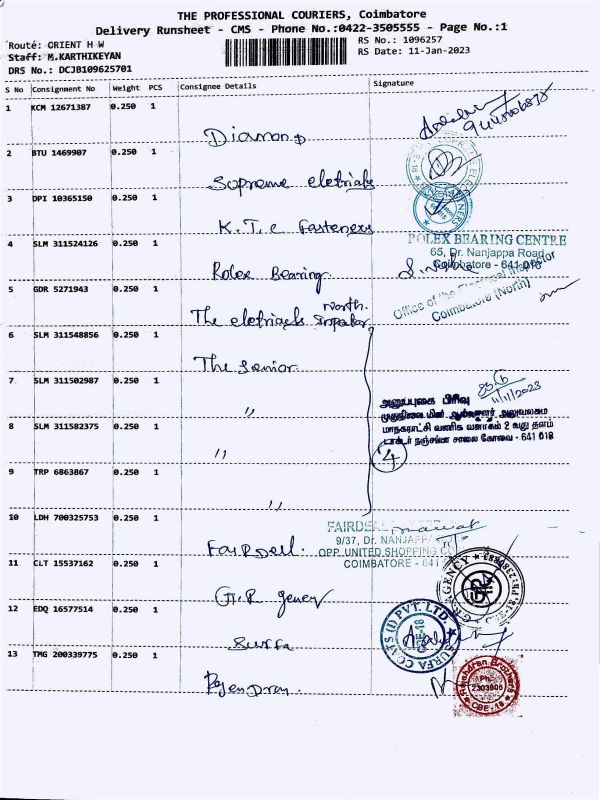 THE PROFESSIONAL COURIERS, Coimbatore
Delivery Runsheet - CMS - Phone No.:0422-3505555 - Page No.:1
Route: ORIENT H W
RS No.: 1096257
Staff: M.KARTHIKEYAN
RS Date: 11-Jan-2023
DRS No.: DCJB109625701
S No Consignment No Weight PCS Consignee Details Signature
1 KCM 12671387 0.250 1
Diamond
2 BTU 1469907 0.250 1
Supreme eletrials
3 DPI 10365150 0.250 1
K.T.C Fasteners
4 SLM 311524126 0.250 1
POLEX BEARING CENTRE
65, Dr. Nanjappa Road
Coimbatore - 641 018
Rolex Bearing
5 GDR 5271943 0.250 1
Office of the Electrical Inspector
Coimbatore (North)
The eletrials North
6 SLM 311548856 0.250 1
The Senior
7 SLM 311502987 0.250 1
11/1/2023
அனுப்புகை பிரிவு
முதுநிலை மின் ஆய்வாளர் அலுவலகம்
மாநகராட்சி வணிக வளாகம் 2 வது தளம்
டாக்டர் நஞ்சப்பா சாலை கோவை - 641 018
"
8 SLM 311582375 0.250 1
4
"
9 TRP 6863867 0.250 1
"
10 LDH 700325753 0.250 1
FAIRDEAL
9/37, Dr. NANJAPPA
OPP. UNITED SHOPPING
COIMBATORE - 641
Fairdell.
11 CLT 15537162 0.250 1
G.R AGENCY
G.R Gency
12 EDQ 16577514 0.250 1
SURFA COATS (I) PVT. LTD.
CBE-18
Surfa
13 TMG 200339775 0.250 1
Rajendran Brothers
Ph:
2303905
CBE-18
Rajendran